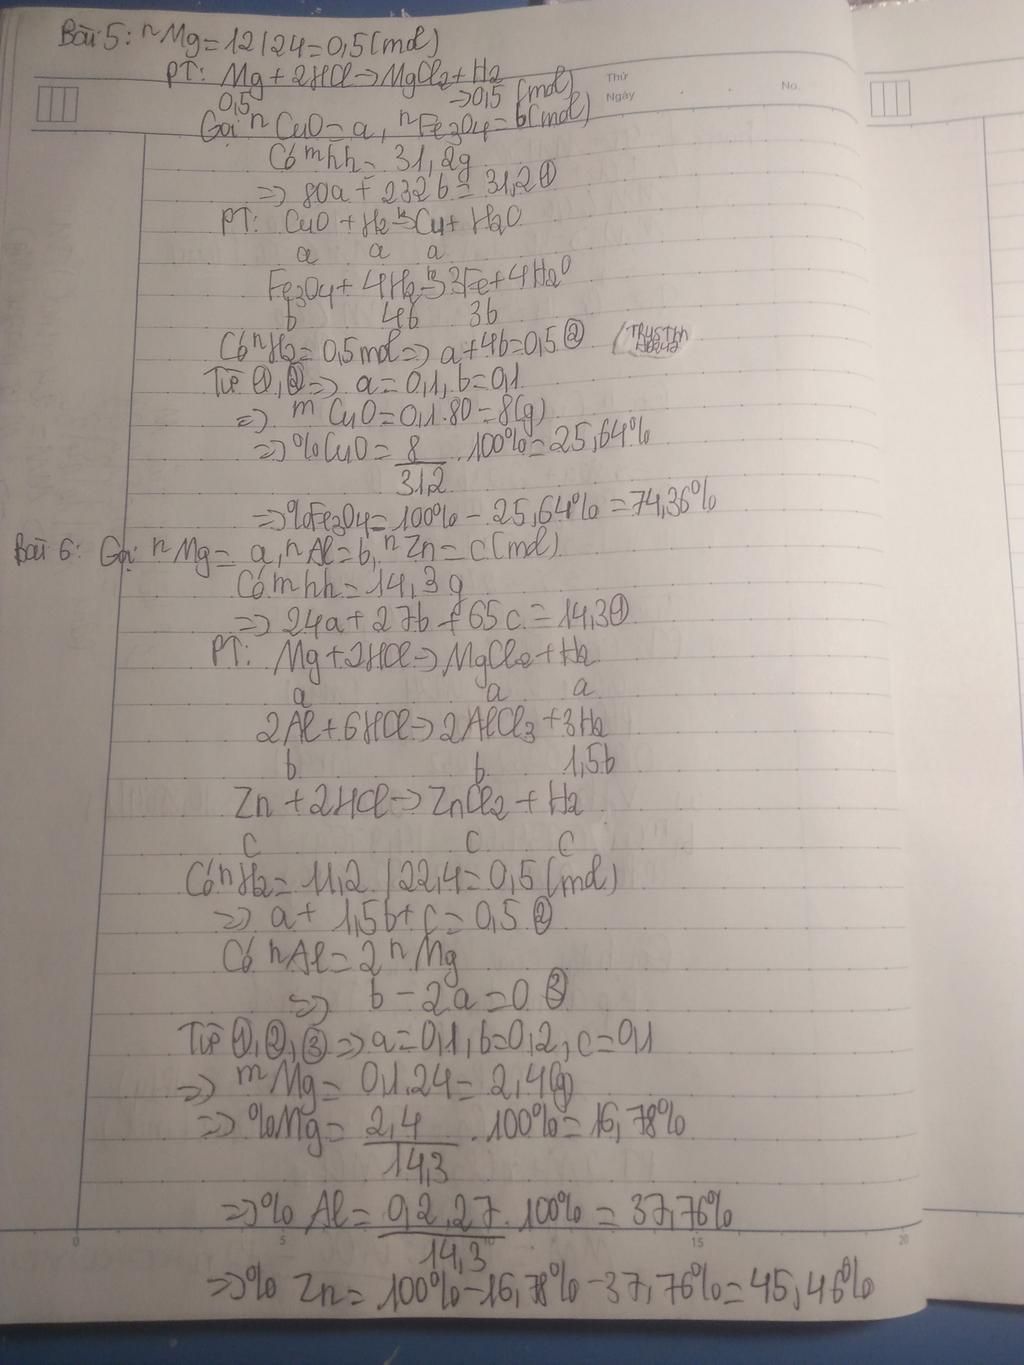 Bài 5: nMg = 12/24 = 0,5 (mol)
PT: Mg + 2HCl → MgCl2 + H2
Thứ
No.
0,5 → 0,5 (mol)
Ngày
Gọi nCuO = a, nFe3O4 = b (mol)
Có mhh = 31,2g
=> 80a + 232b = 31,2 ①
PT: CuO + H2 → Cu + H2O
a a a
Fe3O4 + 4H2 → 3Fe + 4H2O
b 4b 3b
Có nH2 = 0,5 mol => a + 4b = 0,5 ②
Từ ①, ② => a = 0,1, b = 0,1
=> mCuO = 0,1.80 = 8 (g)
=> %CuO = 8 . 100% = 25,64%
31,2
=> %Fe3O4 = 100% - 25,64% = 74,36%
Bài 6: Gọi nMg = a, nAl = b, nZn = c (mol)
Có mhh = 14,3 g
=> 24a + 27b + 65c = 14,3 ①
PT: Mg + 2HCl → MgCl2 + H2
a a a
2Al + 6HCl → 2AlCl3 + 3H2
b b 1,5b
Zn + 2HCl → ZnCl2 + H2
c c c
Có nH2 = 11,2 / 22,4 = 0,5 (mol)
=> a + 1,5b + c = 0,5 ②
Có nAl = 2nMg
=> b - 2a = 0 ③
Từ ①, ②, ③ => a = 0,1, b = 0,2, c = 0,1
=> mMg = 0,1.24 = 2,4 (g)
=> %Mg = 2,4 . 100% = 16,78%
14,3
=> % Al = 0,2.27 . 100% = 37,76%
0 5 10 15 20
14,3
=> % Zn = 100% - 16,78% - 37,76% = 45,46%